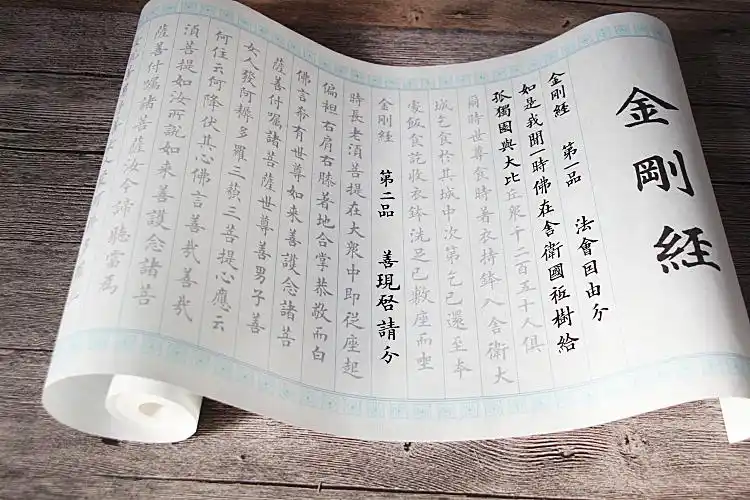 金剛經
金剛經 第一品 法會因由分
如是我聞一時佛在舍衛國祇樹給
孤獨園與大比丘衆千二百五十人俱
爾時世尊食時著衣持鉢入舍衛大
城乞食於其城中次第乞已還至本
處飯食訖收衣鉢洗足已敷座而坐
金剛經 第二品 善現啓請分
時長老須菩提在大衆中即從座起
偏袒右肩右膝著地合掌恭敬而白
佛言希有世尊如來善護念諸菩
薩善付囑諸菩薩世尊善男子善
女人發阿耨多羅三藐三菩提心應云
何住云何降伏其心佛言善哉善哉
須菩提如汝所說如來善護念諸菩
薩善付囑諸菩薩汝今諦聽當為